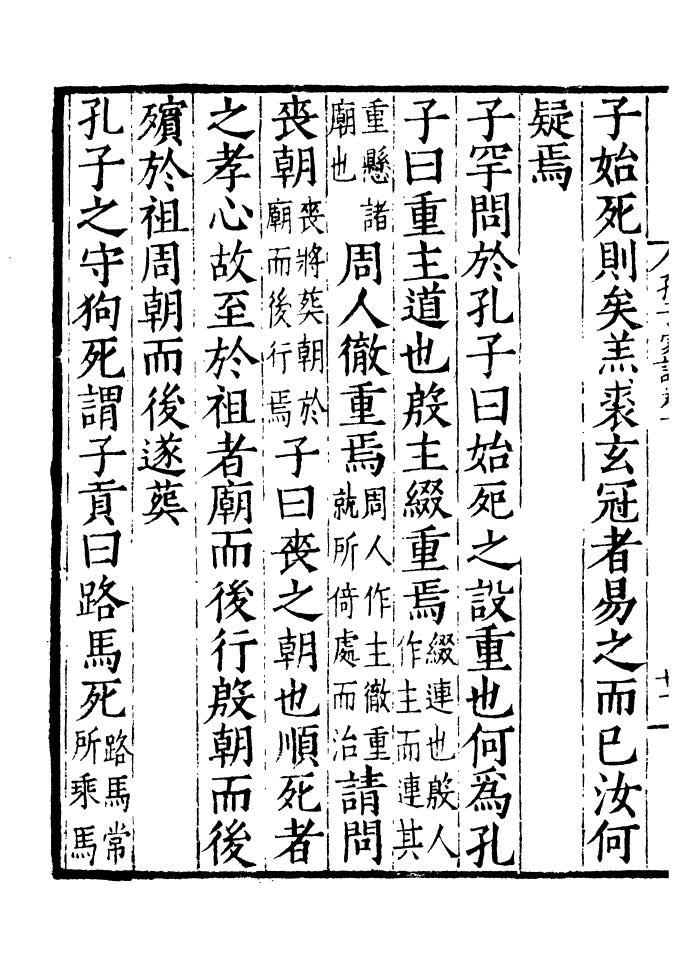 子始死則矣羔裘玄冠者易之而已汝何
疑焉
子罕問於孔子曰始死之設重也何爲孔
子曰重主道也殷主綴重焉綴連也殷人作主而連其
重懸諸廟也周人徹重焉周人作主徹重就所倚處而治請問
喪朝喪將葬朝於廟而後行焉子曰喪之朝也順死者
之孝心故至於祖者廟而後行殷朝而後
殯於祖周朝而後遂葬
孔子之守狗死謂子貢曰路馬死路馬常所乘馬